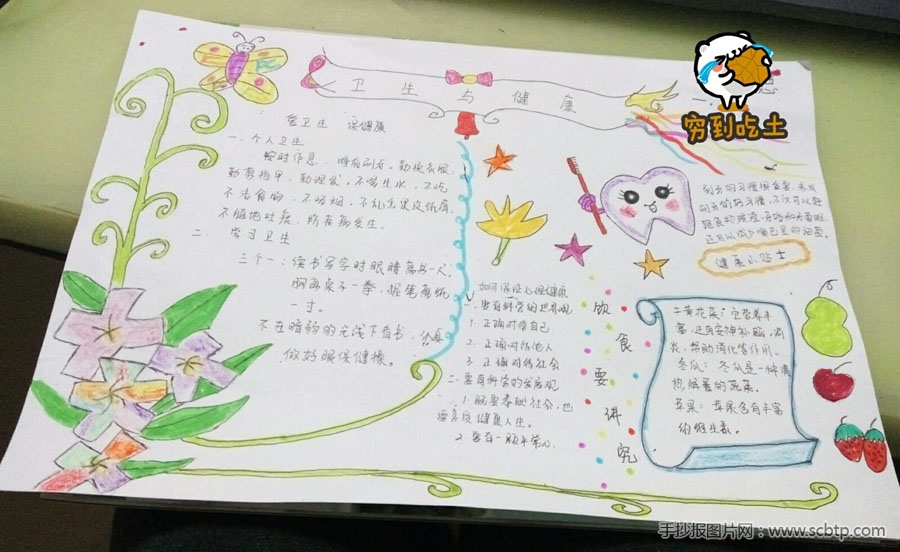 卫生与健康
爱卫生 保健康
一、个人卫生
按时作息,睡前刷牙,勤换衣服,
勤剪指甲,勤理发,不喝生水,不吃
不洁食物,不吸烟,不乱丢果皮纸屑,
不随地吐痰,防疾病发生。
二、学习卫生
三个一:读书写字时眼睛离书一尺,
胸离桌子一拳,握笔离纸
一寸。
不在暗弱的光线下看书,
做好眼保健操。
如何保持心理健康
一.要有科学的世界观
1.正确对待自己
2.正确对待他人
3.正确对待社会
二.要有科学的发展观
1.既要奉献社会,也
要享受健康人生。
2.要有一颗平常心
饮食要讲究
刷牙的习惯很重要,
刷牙的好习惯,不仅可以赶
走
还可以减少嘴巴里的细菌。
健康小贴士
黄花菜:它营养丰
富,还有安神补脑,消
炎,帮助消化等作用。
冬瓜:冬瓜是一种清
热解暑的蔬菜。
苹果:苹果含有丰富
的维生素。
穷到吃土
手抄报图片网:www.scbtp.com